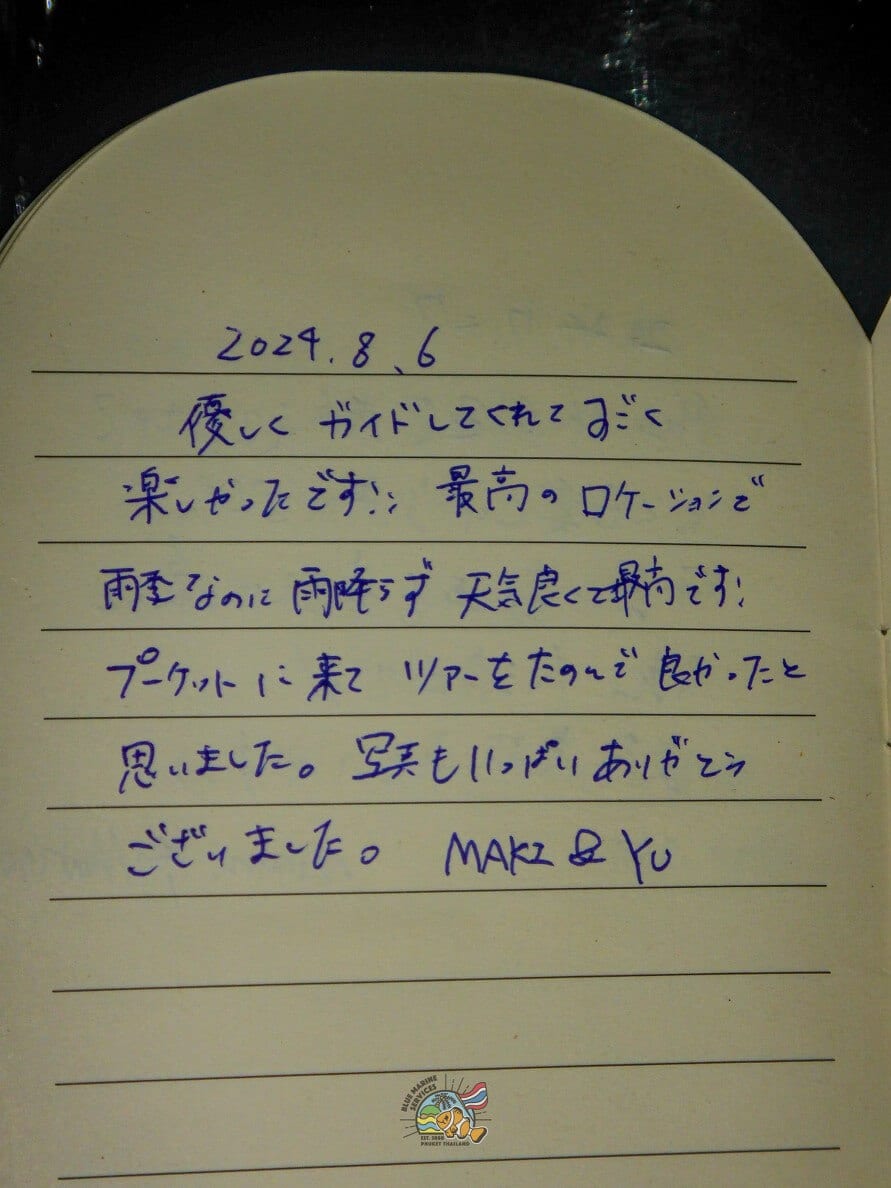 2024.8.6
優しく ガイドしてくれて すごく
楽しかったです!! 最高の ロケーションで
雨季なのに 雨降らず 天気良くて最高です!
プーケットに来て ツアーをたのんで 良かったと
思いました。 写真もいっぱい ありがとう
ございました。 MAKI & YU
BLUE MARINE
SERVICES
PHUKET THAILAND